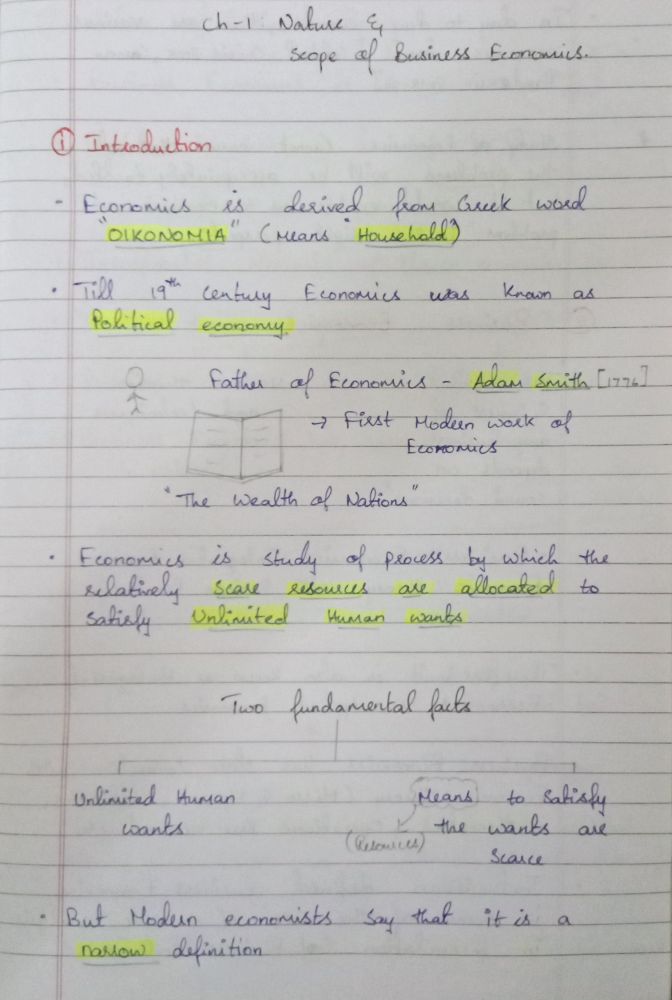 Ch-1 Nature &
Scope of Business Economics.
① Introduction
- Economics is derived from Greek word
"OIKONOMIA" (Means "Household")
• Till 19th Century Economics was known as
Political economy.
Father of Economics - Adam Smith [1776]
→ First Modern work of
Economics
"The Wealth of Nations"
• Economics is study of process by which the
relatively scare resources are allocated to
satisfy Unlimited Human wants
Two fundamental facts
Unlimited Human
wants
Means to satisfy
(Resources) the wants are
Scarce
• But Modern economists say that it is a
narrow definition